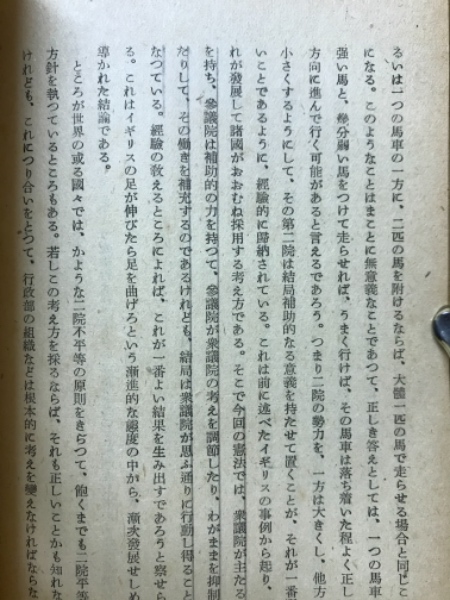 るいは一つの馬車の一方に、二匹の馬を附けるならば、大體一匹の馬で走らせる場合と同じこ
になる。このようなことはまことに無意義なことであつて、正しき答えとしては、一つの馬車
強い馬と、幾分弱い馬をつけて走らせれば、うまく行けば、その馬車は落ち着いた程よく正し
方向に進んで行く可能があると言えるであろう。つまり二院の勢力を、一方は大きくし、他方
小さくするようにして、その第二院は結局補助的なる意義を持たせて置くことが、それが一番
いことであるように、經驗的に歸納されている。これは前に述べたイギリスの事例から起り、
れが發展して諸國がおおむね採用する考え方である。そこで今回の憲法では、衆議院が主たる
を持ち、參議院は補助的の力を持つて、參議院が衆議院の考えを調節したり、わがままを抑制
たりして、その働きを補充するのであるけれども、結局は衆議院が思ふ通りに行動し得ること
なつている。經驗の敎えるところによれば、これが一番よい結果を生み出すであろうと察せら
る。これはイギリスの足が伸びたら足を曲げろという漸進的な態度の中から、漸次發展せしめ
導かれた結論である。
ところが世界の或る國々では、かような二院不平等の原則をきらつて、飽くまでも二院平等
方針を執つているところもある。若しこの考え方を採るならば、それも正しいことかも知れな
けれども、これにつり合いをとつて、行政部の組織などは根本的に考えを變えなければならな